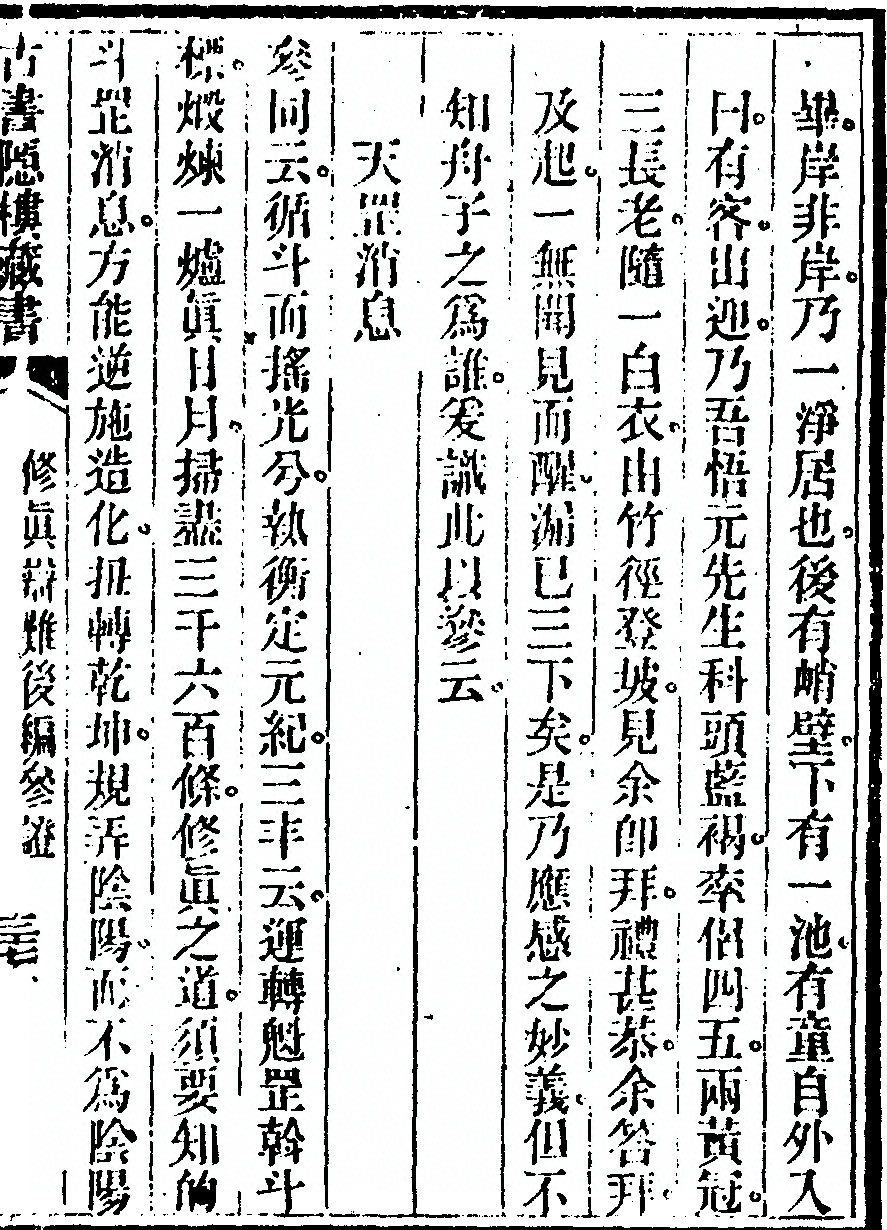 畢岸非岸乃一淨居也後有峭壁下有一池有童自外入
曰有客出迎乃吾悟元先生科頭藍褐率侶四五兩黃冠
三長老隨一白衣由竹徑登坡見余卽拜禮甚恭余答拜
及起一無聞見而醒漏已三下矣是乃應感之妙義但不
知舟子之爲誰爰識此以參云
天罡消息
參同云循斗而搖光兮執衡定元紀三丰云運轉魁罡斡斗
標煅煉一爐眞日月掃盡三千六百條修眞之道須要知的
斗罡消息方能逆施造化扭轉乾坤規弄陰陽而不爲陰陽
古書隱樓藏書
修眞辯難後編參證
三七